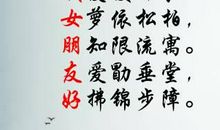 女萝依松柏，
朋知限流寓。
友爱勖垂堂，
好拂锦步障。